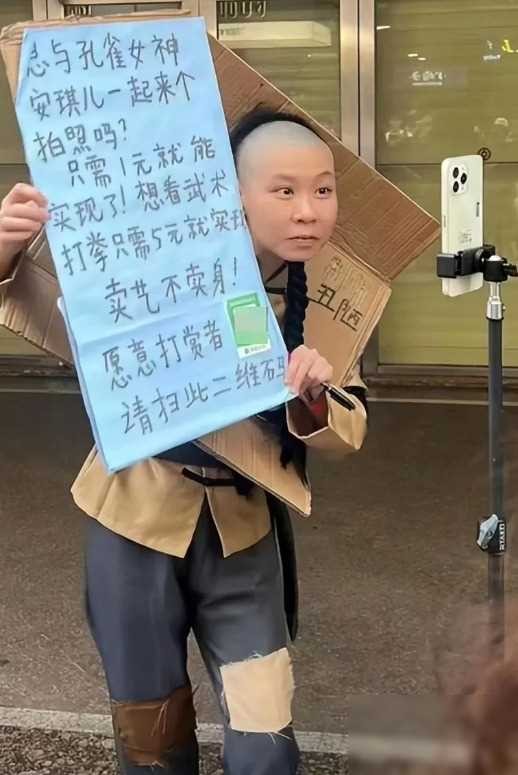 想与孔雀女神
安琪儿一起来个
拍照吗？
只需1元就能
实现了！想看武术
打拳只需5元就实现
卖艺不卖身！
愿意打赏者
请扫此二维码
丑陋